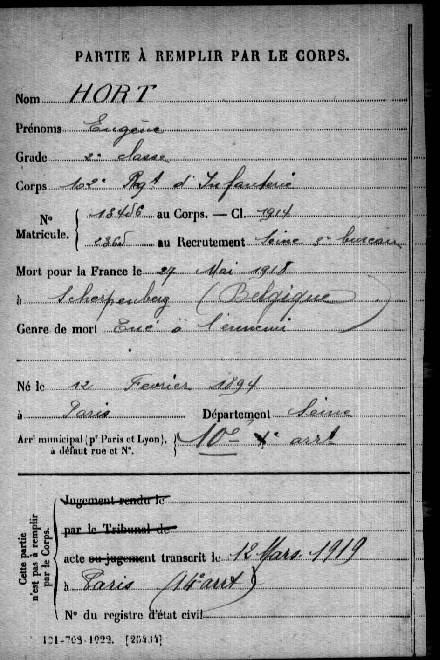 PARTIE À REMPLIR PAR LE CORPS.
Nom HORT
Prénoms Eugène
Grade 2e classe
Corps 102e Rgt d'Infanterie
No Matricule. 18456 au Corps. — Cl. 1914
2365 au Recrutement Seine 5e bureau
Mort pour la France le 27 Mai 1918
à Scherpenberg (Belgique)
Genre de mort Tué à l'ennemi
Né le 12 Fevrier 1894
à Paris Département Seine
Arrt municipal (pr Paris et Lyon), à défaut rue et No. 10e arrt
Cette partie n'est pas à remplir par le Corps.
Jugement rendu le
par le Tribunal de
acte ou jugement transcrit le 12 Mars 1919
à Paris (14e arrt)
No du registre d'état civil
121-708-1922. [26434]